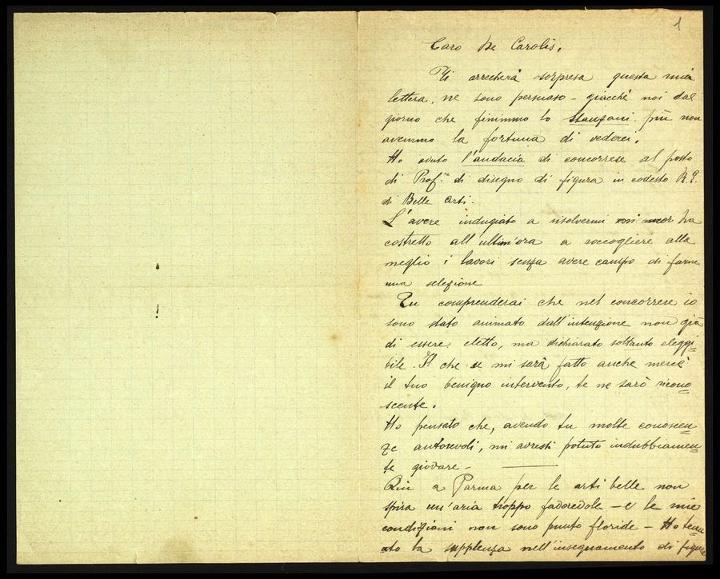 1
Caro De Carolis,
Ti arrecherà sorpresa questa mia
lettera, ne sono persuaso - giacchè noi dal
giorno che finimmo lo più non
avemmo la fortuna di vederci.
Ho avuto l'audacia di concorrere al posto
di Prof.re di disegno di figura in codesto R. I.
di Belle Arti.
L'avere indugiato a risolvermi ha
costretto all'ultim'ora a raccogliere alla
meglio i lavori senza avere campo di farne
una selezione
Tu comprenderai che nel concorrere io
sono stato animato dall'intenzione non già
di essere eletto, ma dichiarato soltanto eleggi-
bile. Il che se mi sarà fatto anche mercè
il tuo benigno intervento, te ne sarò ricono-
scente.
Ho pensato che, avendo tu molte conoscen-
ze autorevoli, mi avresti potuto indubbiamen-
te giovare -
Qui a Parma per le arti belle non
spira un'aria troppo favorevole - e le mie
condizioni non sono punto floride - Ho tenu-
to la supplenza nell'insegnamento di figura